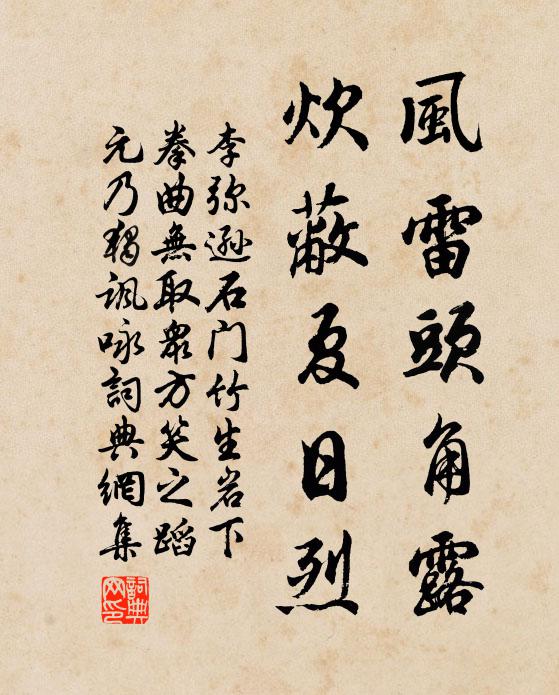 風雷頭角露
炊蔽夏日烈
李弥遜石门竹生岩下
拳曲無取衆方笑之蹈
元乃獨諷咏詞典網集
詞典
网印